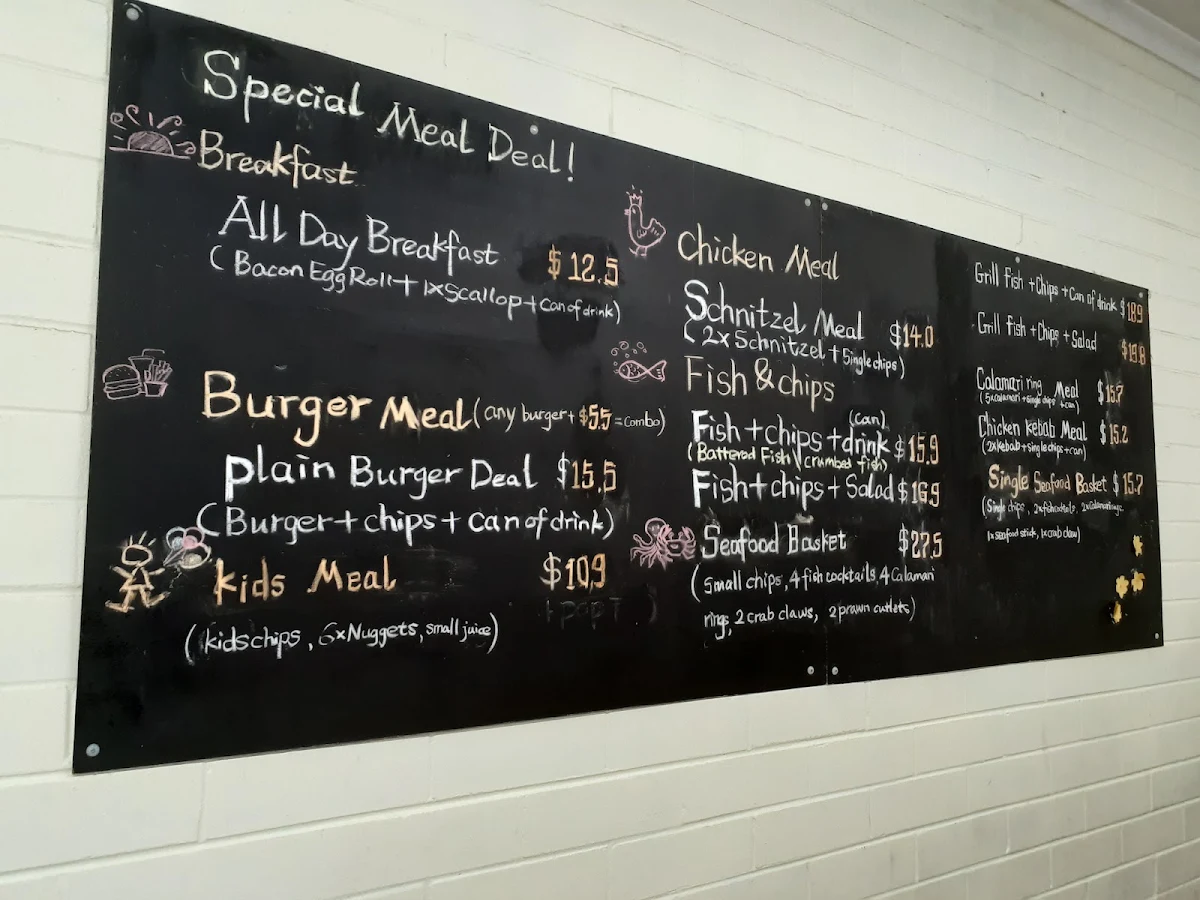 Special Meal Deal!
Breakfast
All Day Breakfast $12.5
(Bacon Egg Roll + 1xScallop + Can of drink)
Burger Meal (any burger + $5.5 = combo)
plain Burger Deal $15.5
(Burger + chips + can of drink)
kids Meal $10.9
(kids chips, 6xNuggets, small juice)
Chicken Meal
Schnitzel Meal $14.0
(2x Schnitzel + Single chips)
Fish & chips
(can)
Fish + chips + drink $15.9
(Battered Fish \ crumbed fish)
Fish + chips + Salad $16.9
Seafood Basket $27.5
(small chips, 4 fish cocktails, 4 Calamari
rings, 2 crab claws, 2 prawn cutlets)
Grill fish + Chips + Can of drink $18.9
Grill fish + Chips + Salad
Calamari ring Meal $15.7
(5xcalamari + single chips + can)
Chicken kebab Meal $15.2
(2xkebab + single chips + can)
Single Seafood Basket $15.7
(Single chips, 2xfish cocktails, 2xcalamari rings,
1x seafood stick, 1xcrab claw)